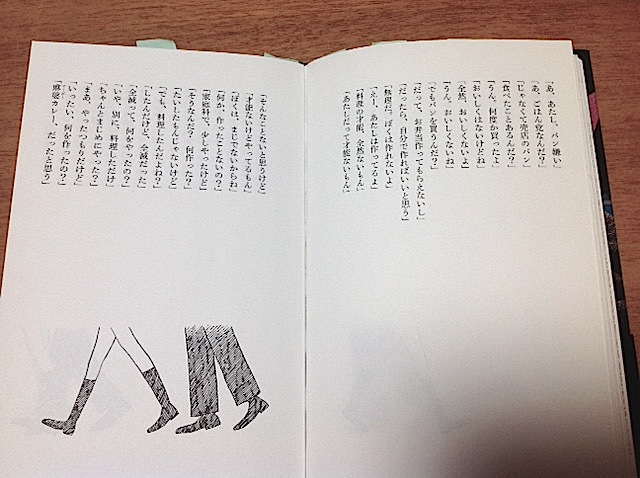 「あ、あたし、パン嫌い」
「あ、ごはん党なんだ？」
「じゃなくて売店のパン」
「食べたことあるんだ？」
「うん。何度か買ったよ」
「おいしくはないけどね」
「全然、おいしくないよ」
「うん。おいしくないね」
「でもパンを買うんだ？」
「だって、お弁当作ってもらえないし」
「だったら、自分で作ればいいと思う」
「無理だ。ぼくは作れないよ」
「えー、あたしは作ってるよ」
「料理の才能、全然ないもん」
「あたしだって才能ないもん」
「そんなことないと思うけど」
「才能ないけどやってるもん」
「ぼくは、まじでないからね」
「何か、作ったことないの？」
「家庭科で、少しやったけど」
「そうなんだ？　何作った？」
「たいしたもんじゃないけど」
「でも、料理したんだよね？」
「したんだけど、全滅だった」
「全滅って、何をやったの？」
「いや、別に、料理しただけ」
「ちゃんとまじめにやった？」
「まあ、やったつもりだけど」
「いったい、何を作ったの？」
「麻婆カレー、だったと思う」